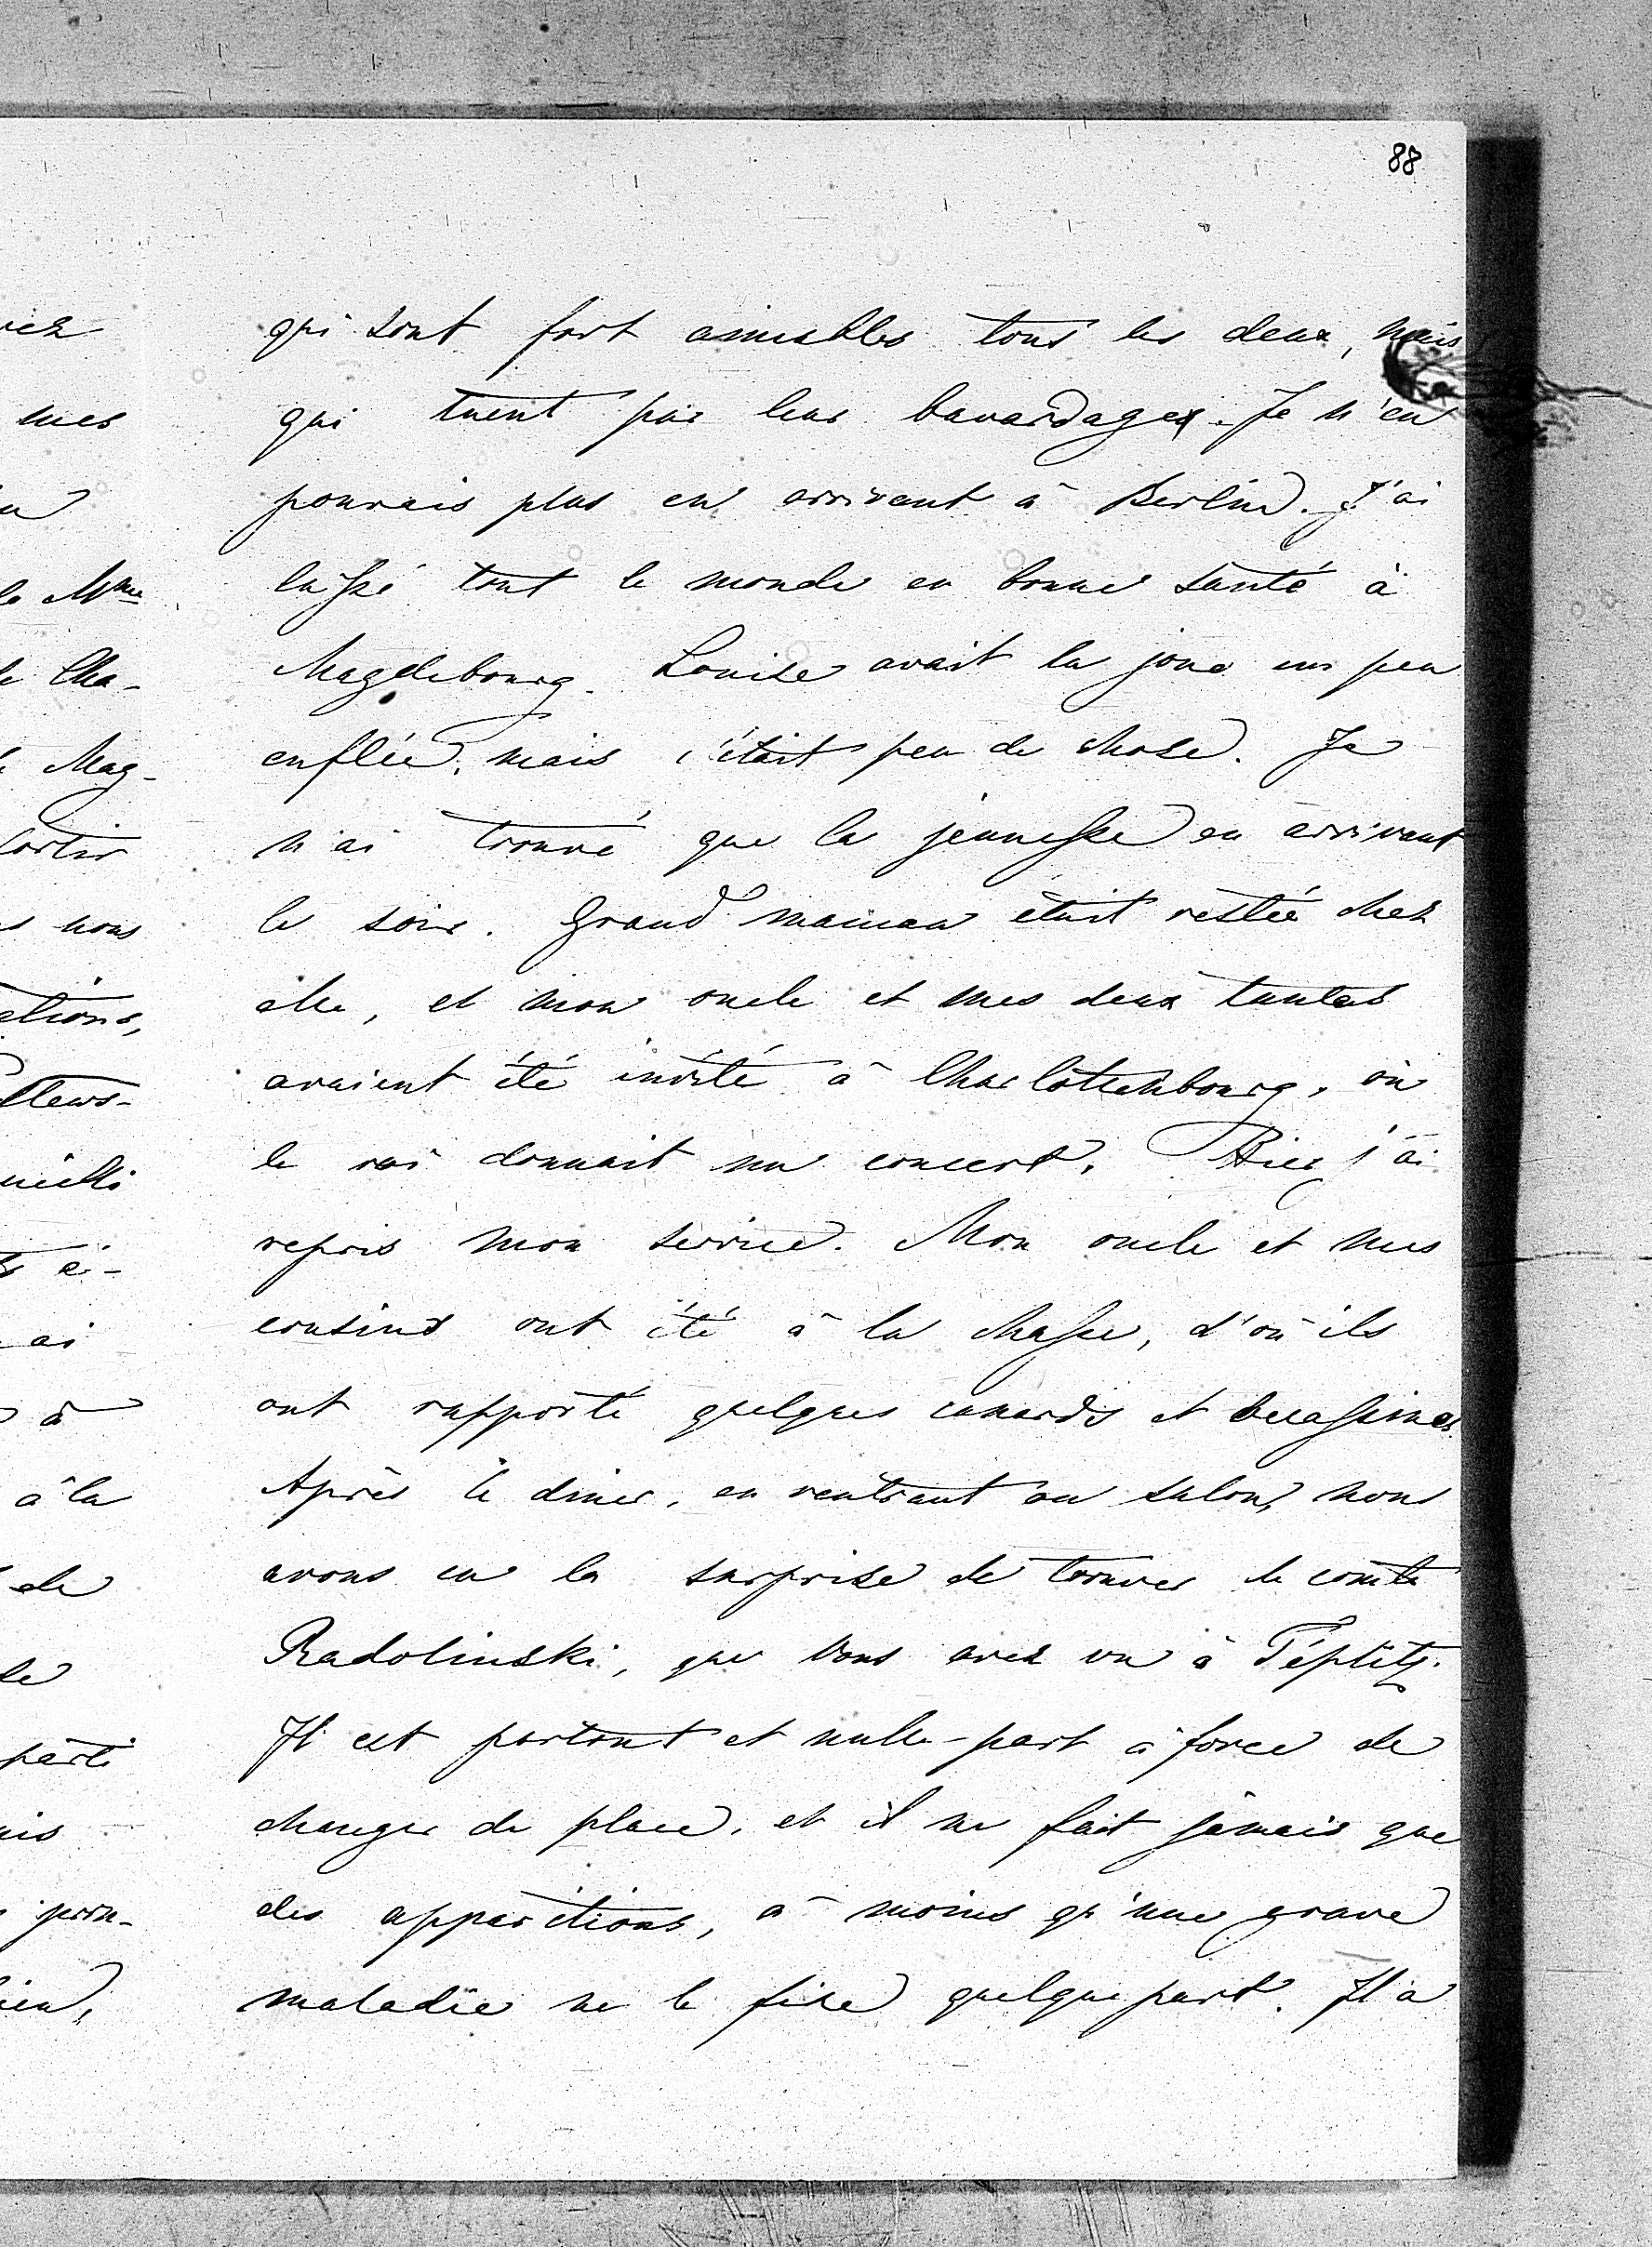 88
qui sont fort aimables tous les deux, mais
qui tuent par leur bavardages. Je n'en
pouvais plus en arrivant à Berlin. J'ai
laissé tout le monde en bonne santé à
Magdebourg. Louise avait la joue un peu
enflée, mais c'était peu de chose. Je
n'ai trouvé que la jeunesse en arrivant
le soir. Grand maman était restée chez
elle, et mon oncle et mes deux tantes
avaient été invité à Charlottenbourg, où
le roi donnait un concert. Hier j'ai
repris mon service. Mon oncle et mes
cousins ont été à la chasse, d'où ils
ont rapporté quelques canards et becassines.
Après le diner, en rentrant au salon, nous
avons eu la surprise de trouver le comte
Radolinski, que vous avez vu à Téplitz.
Il est partout et nulle-part à force de
changer de place, et il ne fait jamais que
des apparitions, à moins qu'une grave
maladie ne le fixe quelque part. Il a
vez
mes
de Mme
de Cha-
de Mag-
sortir
nous
ations,
à
à la
de
parti